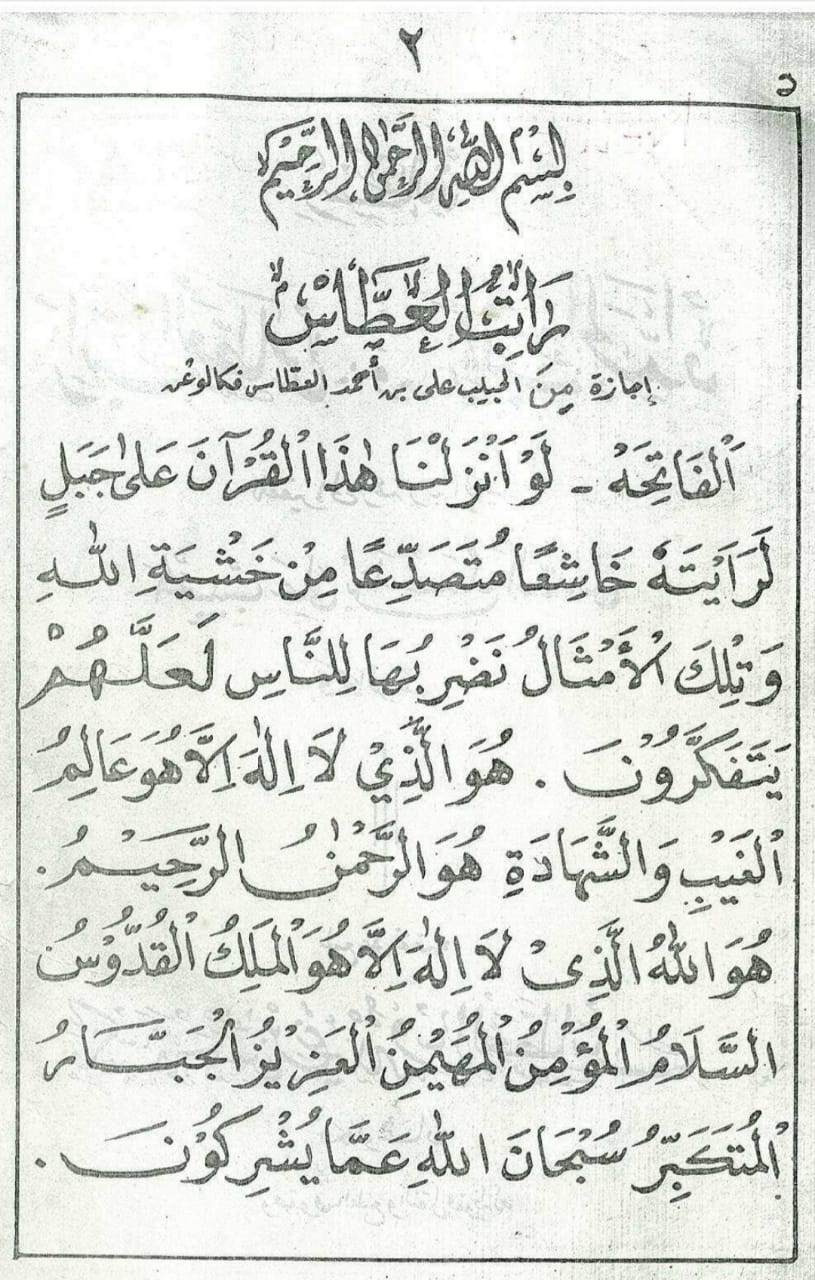 ٢
بِسْمِ اللهِ الرَّحْمٰنِ الرَّحِيْمِ
رَاتِبُ الْعَطَّاسِ
إجازة مِنَ الحبيب على بن أحمد العطاس فكالوغن
اَلْفَاتِحَهْ - لَوْ اَنْزَلْنَا هٰذَا الْقُرْآنَ عَلٰى جَبَلٍ
لَرَاَيْتَهُ خَاشِعًا مُتَصَدِّعًا مِنْ خَشْيَةِ اللهِ
وَتِلْكَ الْأَمْثَالُ نَضْرِبُهَا لِلنَّاسِ لَعَلَّهُمْ
يَتَفَكَّرُوْنَ . هُوَ الَّذِيْ لَا اِلٰهَ اِلَّا هُوَ عَالِمُ
الْغَيْبِ وَالشَّهَادَةِ هُوَ الرَّحْمٰنُ الرَّحِيْمُ .
هُوَ اللهُ الَّذِىْ لَا اِلٰهَ اِلَّا هُوَ الْمَلِكُ الْقُدُّوْسُ
السَّلَامُ الْمُؤْمِنُ الْمُهَيْمِنُ الْعَزِيْزُ الْجَبَّارُ
الْمُتَكَبِّرُ سُبْحَانَ اللهِ عَمَّا يُشْرِكُوْنَ .